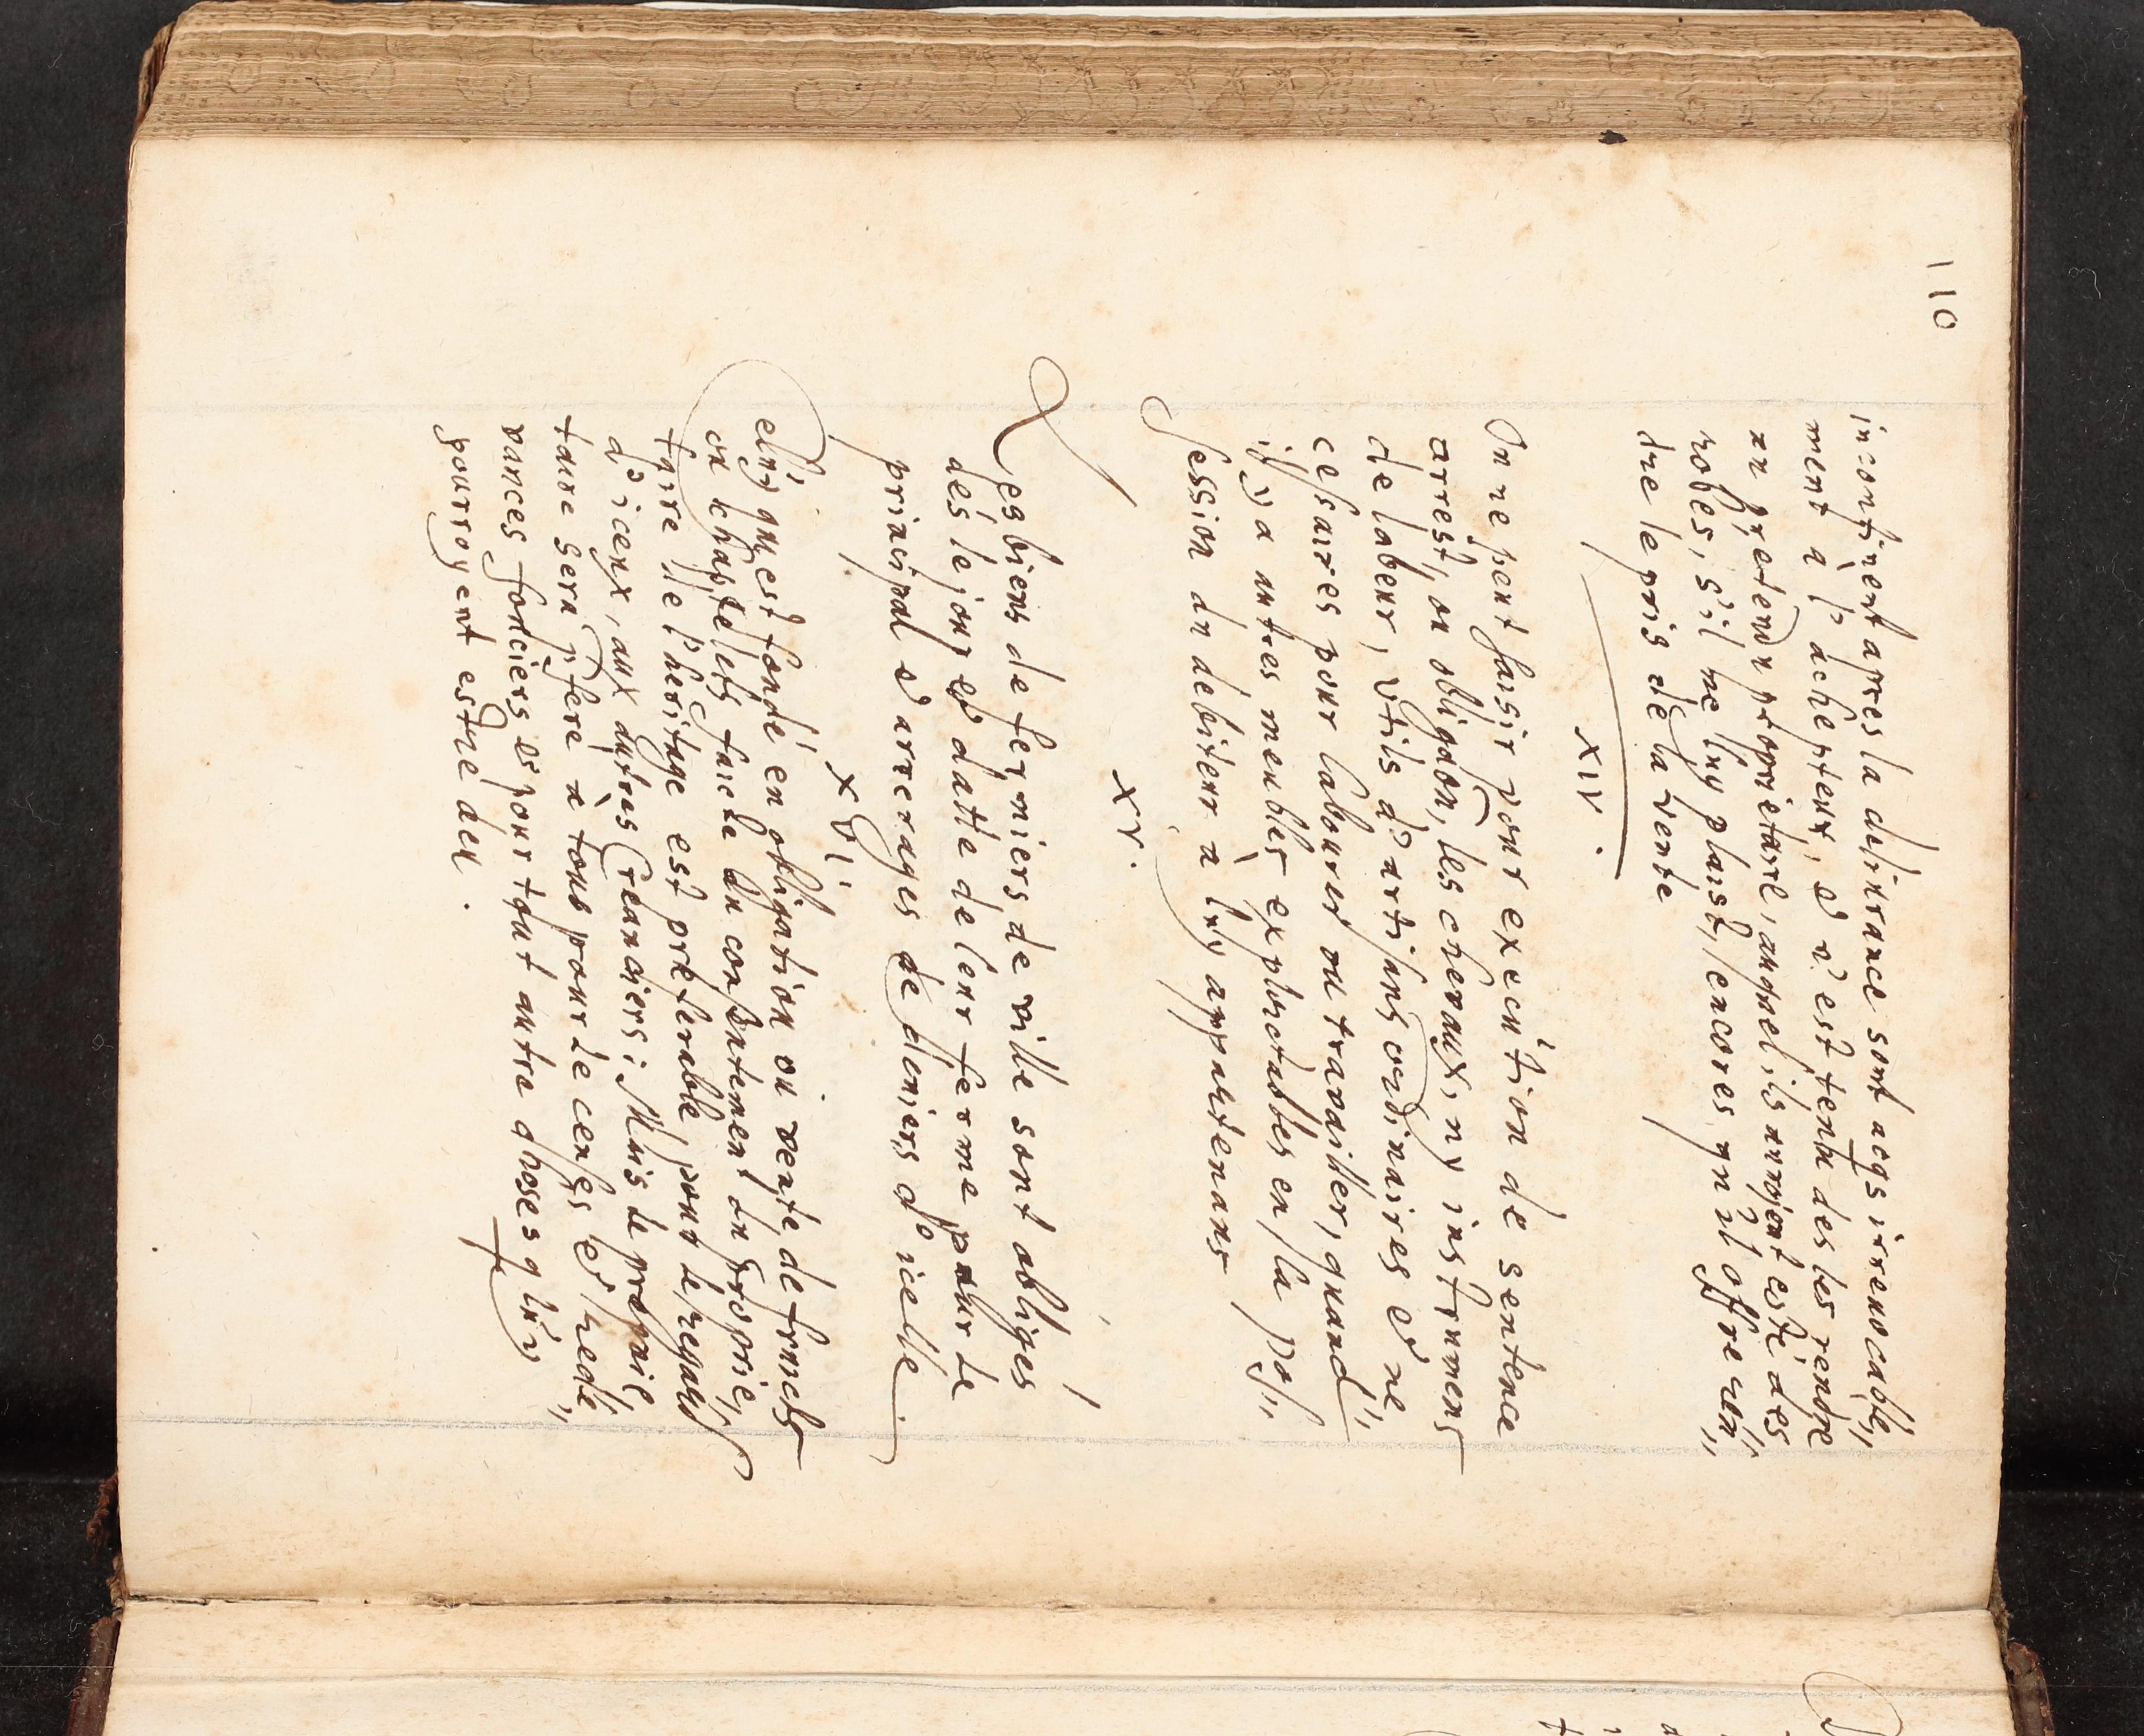 110
incontinent apres la deliurance sont acqs irreuocable„
ment a l'achepteur, & n'est tenu des les rendre
au pretendu proprietaire, auquel ils auroient esté des
robés, s'il ne luy plaist, encores qu'il offre ren„
dre le pris de la vente
XIV.
On ne peut saisir pour execution de sentence
arrest, ou obligaon, les cheuaux, ny instrumens
de labeur, vtils d'artisans ordinaires & ne
cessaires pour labourer ou trauailler, quand„
il y a autres meubles exploctables en la pos„
session du debiteur a luy appartenans
XV.
Les biens de fermiers de ville sont obliges
dés le jour & datte de leur ferme pour le
principal & arrerages de deniers d'icelle
XVI.
Cluy qui est fondé en obligation ou vente de fruicts
ou chastelets faicte du consentement du proprie„
taire de l'heritage est preferable pour le regard
d'iceux, aux autres Creandiers: Mais le propriè
taire sera pferé a tous pour le censes & rede„
vances fonciers & pour tout autre choses q luy
pourroyent estre deu.